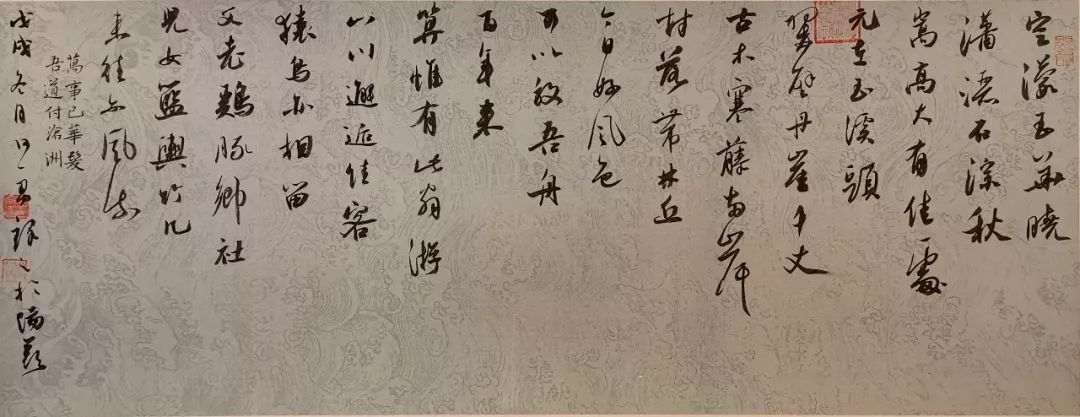 空濛玉華曉
瀟洒石淙秋
嵩高大有佳處
元在玉溪頭
翠壁丹崖千丈
古木寒藤兩岸
村落帶林丘
今日好風色
可以放吾舟
百年來
算惟有此翁游
山川邂逅佳客
猿鳥亦相留
父老鷄豚鄉社
兒女籃輿竹几
來往亦風流
萬事已華髮
吾道付滄洲
戊戌冬月 於陽羨